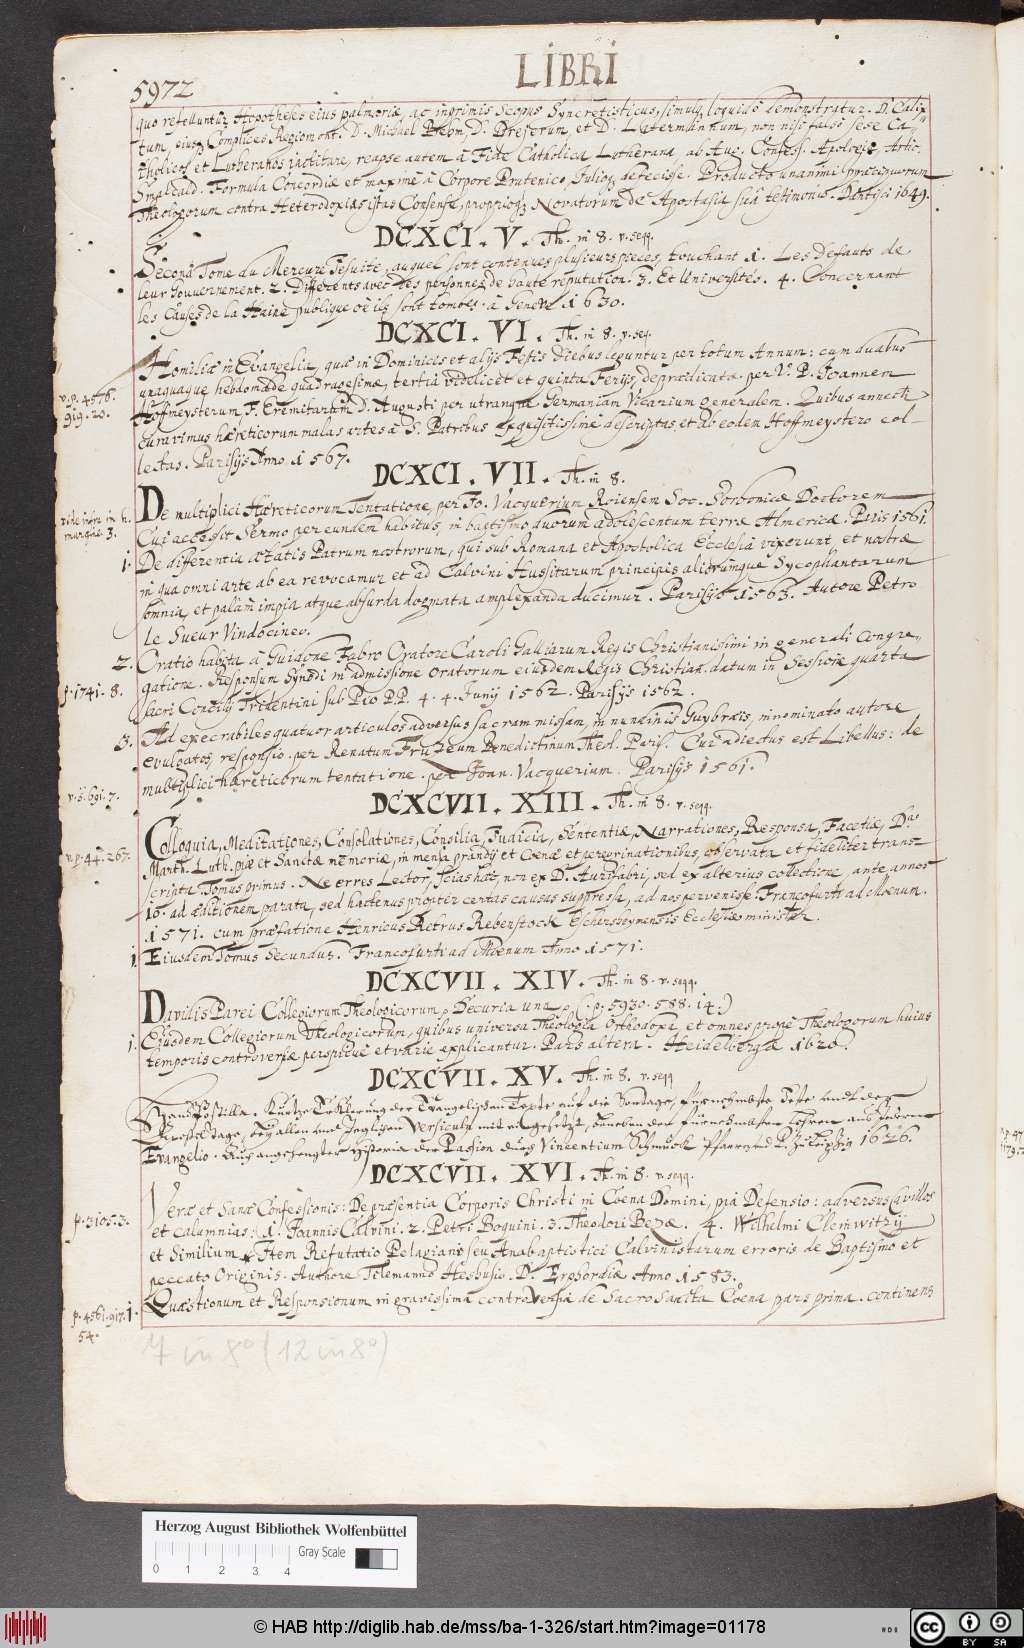 5972
LIBRI
quo refelluntur Hypotheses eius palmariæ, ac inprimis Scopus Syncretisticus, simulq. loquido demonstratur. D. Calix-
tum, eiusq. Complices Regiomont. D. Michael Behm, D. Dreierum, et D. Latermannum, non nisi falso sese Ca-
tholicos et Lutheranos iactitare, reapse autem â Fide Catholica Lutherana ab Aug. Confess. Apologia, Artic.
Smalcald. Formula Concordiæ et maximè â Corpore Prutenico, Julioq. defecisse. Producto unanimi præcipuorum
Theologorum contra Heterodoxias istas Consensu, proprioq. Novatorum de Apostasia suâ testimonio. Dantisci 1649.
DCXCI. V. Th. in 8. v. seqq.
Second Tome du Mercure Jesuite, auquel sont contenues plusieurs pieces, touchant 1. Les Defauts de
leur Gouvernement. 2. Differents avec des personnes de haute reputation. 3. Et Universités. 4. Concernant
les Causes de la Haine publique oé ils sont tombés. â Geneve 1630.
DCXCI. VI. Th. in 8. v. seq.
v. p. 4576.
919. 20.
Homiliæ in Evangelia, quæ in Dominicis et alijs Festis Diebus leguntur per totum Annum: cum duabus
unaquaque hebdomade quadragesimæ, tertiâ videlicet et quinta Ferijs, deprædicatæ. per V. P. Joannem
Hoffmeysterum F. Eremitarum D. Augusti per utranque Germaniam Vicarium generalem. Quibus annecti
curavimus hæreticorum malas artes â S. Patribus exquisitissime descriptas, et ab eodem Hoffmeystero col-
lectas. Parisijs Anno 1567.
DCXCI. VII. Th. in 8.
De multiplici Hæreticorum Tentatione, per Jo. Vacquerium Roiensem Soc. Sorbonicæ Doctorem
Cui accessit Sermo per eundem habitus, in baptismo duorum adolescentum terræ Almericæ. Paris 1561.
1. De differentia ætatis Patrum nostrorum, qui sub Romana et Apostolica Ecclesiâ vixerunt, et nostræ,
in qua omni arte ab ea revocamur et ad Calvini Hussitarum principis aliorumque Sycophantarum
omnia, et palàm impia atque absurda dogmata amplexanda ducimur. Parisijs 1563. Autore Petro
le Sueur Vindocineo.
2. Oratio habita â Guidone Fabro Oratore Caroli Galliarum Regis Christianissimi in generali Congre-
gatione. Responsum Synodi in admissione Oratorum eiusdem Regis Christian. datum in Sessione quarta
sacri Concilij Tridentini sub Pio P.P. 4. 4. Junij 1562. Parisijs 1562.
p. 1741. 8.
3. Ad execrabiles quatuor articulos adversus sacram missam, in nundinis Guybrais, innominato autore
evulgatos, responsio. per Renatum Benedictinum Theol. Paris. Cui adiectus est Libellus: de
multiplici hæreticorum tentatione. per Joan. Vacquerium. Parisijs 1561.
DCXCVII. XIII. Th. in 8. v. seqq.
v. s. 691. 7.
v. p. 44. 267.
Colloquia, Meditationes, Consolationes, Consilia, Judicia, Sententiæ, Narrationes, Responsa, Facetiæ, D.
Marth. Luth. piæ et Sanctæ memoriæ, in mensa prandij et Cœnæ et peregrinationibus, observata et fideliter trans-
scripta. Tomus primus. Ne erres Lector, scias hæc, non ex D. Aurifabri, sed ex alterius collectione, ante annos
10. ad æditionem parata, sed hactenus propter certas causas suppressa, ad nos pervenisse. Francofurti ad Mœnum.
1571. cum præfatione Henricus Petrus Rebenstock Eschersheymensis Ecclesiæ minister.
1. Eiusdem Tomus Secundus. Francofurti ad Moenum Anno 1571.
DCXCVII. XIV. Th. in 8. v. seqq.
Davidis Parei Collegiorum Theologicorum, Decuria una, (p. 5930. 588. 14.)
1. Ejusdem Collegiorum Theologicorum, quibus universa Theologia Orthodoxa, et omnes propè Theologorum huius
temporis controversiæ perspicuè et variè explicantur. Pars altera. Heidelbergæ 1620.
DCXCVII. XV. Th. in 8. v. seqq
Hand Postilla. Kurtze Erklerung der Evangelischen Texte auff die Sontage, fürnembste Feste und der
Apostel Tage,
Evangelio. Auch angehengter Historia der Passion durch Vincentium Schmuck Pfarrer und P. zu Leipzig 1626.
DCXCVII. XVI. Th. in 8. v. seqq.
p. 3105. 3.
Veræ et Sanæ Confessionis: De præsentia Corporis Christi in Coena Domini, pia Defensio: adversus Cavillos
et calumnias: 1. Joannis Calvini. 2. Petri Boquini. 3. Theodori Bezæ. 4. Wilhelmi Cleinwitzij
et Similium. Item Refutatio Pelagiani seu Anabaptistici Calvinistarum erroris de Baptismo et
peccato Originis. Authore Tilemanno Heshusio. D. Erphordiæ Anno 1583.
p. 4561. 917.
54.
1. Quæstionum et Responsionum in gravissima controversia de Sacrosancta Coena pars prima. continens
7 in 8° (12 in 8°)
Herzog August Bibliothek Wolfenbüttel
Gray Scale
0 1 2 3 4
© HAB http://diglib.hab.de/mss/ba-1-326/start.htm?image=01178
BY SA